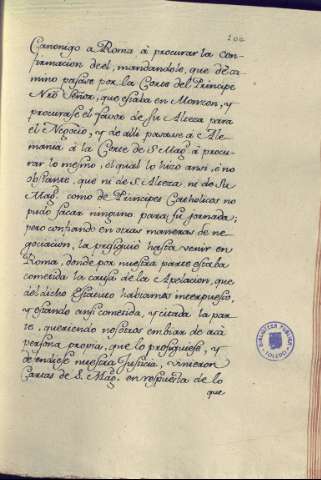 102
Canonigo a Roma à procurar la con-
firmacion de el, mandandole, que de ca-
mino pasase por la Corte del Principe
Nrô Señor, que estaba en Monzon, y
procurase el favor de Su Alteza para
el Negocio, y de alli pasase à Ale-
mania à la Corte de S. Magd. à procu-
rar lo mesmo, el qual lo hizo ansi, è no
obstante, que ni de S. Alteza ni de Su
Magd. como de Principes Catholicos no
pudo sacar ninguno para su jornada;
pero confiando en otras maneras de ne-
gociacion, la prosiguiò hasta venir en
Roma, donde por nuestra parte estaba
cometida la causa de la Apelacion, que
del dicho Estatuto habiamos interpuesto,
y estando ansi cometida, y citada la par-
te, queriendo nosotros embiar de acà
persona propia, que lo prosiguiese, y
defendiese nuestra Justicia, vinieron
Cartas de S. Magd. en respuesta de lo
que
BIBLIOTECA PUBLICA
TOLEDO